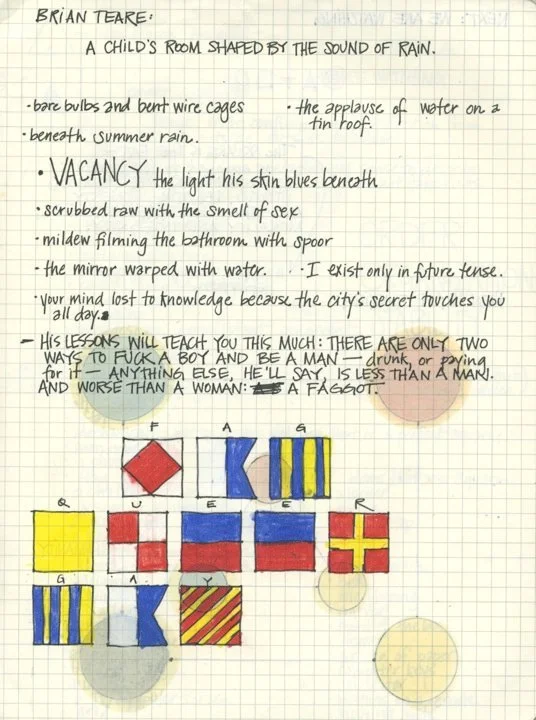 BRIAN TEARE:
A CHILD'S ROOM SHAPED BY THE SOUND OF RAIN.
· bare bulbs and bent wire cages
· the applause of water on a
tin roof.
· beneath summer rain.
· VACANCY the light his skin blues beneath
· scrubbed raw with the smell of sex
· mildew filming the bathroom with spoor
· the mirror warped with water. · I exist only in future tense.
· your mind lost to knowledge because the city's secret touches you
all day.
– HIS LESSONS WILL TEACH YOU THIS MUCH: THERE ARE ONLY TWO
WAYS TO FUCK A BOY AND BE A MAN — drunk, or paying
for it — ANYTHING ELSE, HE'LL SAY, IS LESS THAN A MAN.
AND WORSE THAN A WOMAN: A FAGGOT.
F A G
Q U E E R
G A Y